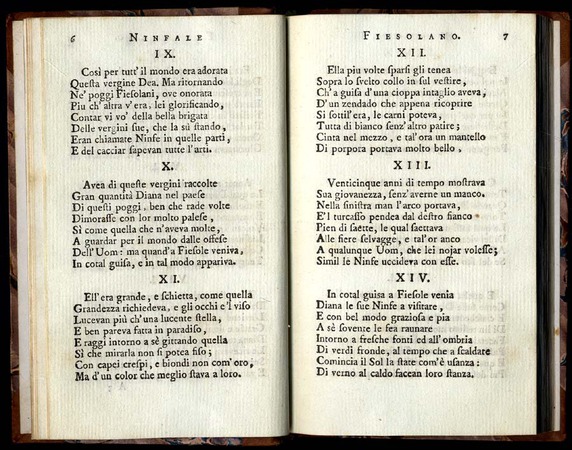 6 NINFALE
IX.
Così per tutt' il mondo era adorata
Questa vergine Dea. Ma ritornando
Ne' poggi Fiesolani, ove onorata
Piu ch' altra v' era, lei glorificando,
Contar vi vo' della bella brigata
Delle vergini sue, che la sù stando,
Eran chiamate Ninfe in quelle parti,
E del cacciar sapevan tutte l'arti.
X.
Avea di queste vergini raccolte
Gran quantità Diana nel paese
Di questi poggi, ben che rade volte
Dimorasse con lor molto palese,
Sì come quella che n'aveva molte,
A guardar per il mondo dalle offese
Dell' Uom: ma quand'a Fiesole veniva,
In cotal guisa, e in tal modo appariva.
XI.
Ell' era grande, e schietta, come quella
Grandezza richiedeva, e gli occhi e 'l viso
Lucevan più ch'una lucente stella,
E ben pareva fatta in paradiso,
E raggi intorno a sè gittando quella
Sì che mirarla non si potea fiso;
Con capei crespi, e biondi non com'oro,
Ma d'un color che meglio stava a loro.
FIESOLANO. 7
XII.
Ella piu volte sparsi gli tenea
Sopra lo svelto collo in sul vestire,
Ch' a guisa d'una cioppa intaglio aveva,
D' un zendado che appena ricoprire
Si sottil'era, le carni poteva,
Tutta di bianco senz'altro patire;
Cinta nel mezzo, e tal'ora un mantello
Di porpora portava molto bello,
XIII.
Venticinque anni di tempo mostrava
Sua giovanezza, senz'averne un manco.
Nella sinistra man l'arco portava,
E'l turcasso pendea dal destro fianco
Pien di saette, le qual saettava
Alle fiere selvagge, e tal'or anco
A qualunque Uom, che lei nojar volesse;
Simil le Ninfe uccideva con esse.
XIV.
In cotal guisa a Fiesole venia
Diana le sue Ninfe a visitare,
E con bel modo graziosa e pia
A sè sovente le fea raunare
Intorno a fresche fonti ed all'ombria
Di verdi fronde, al tempo che a scaldare
Comincia il Sol la state com'è usanza:
Di verno al caldo facean lor stanza.